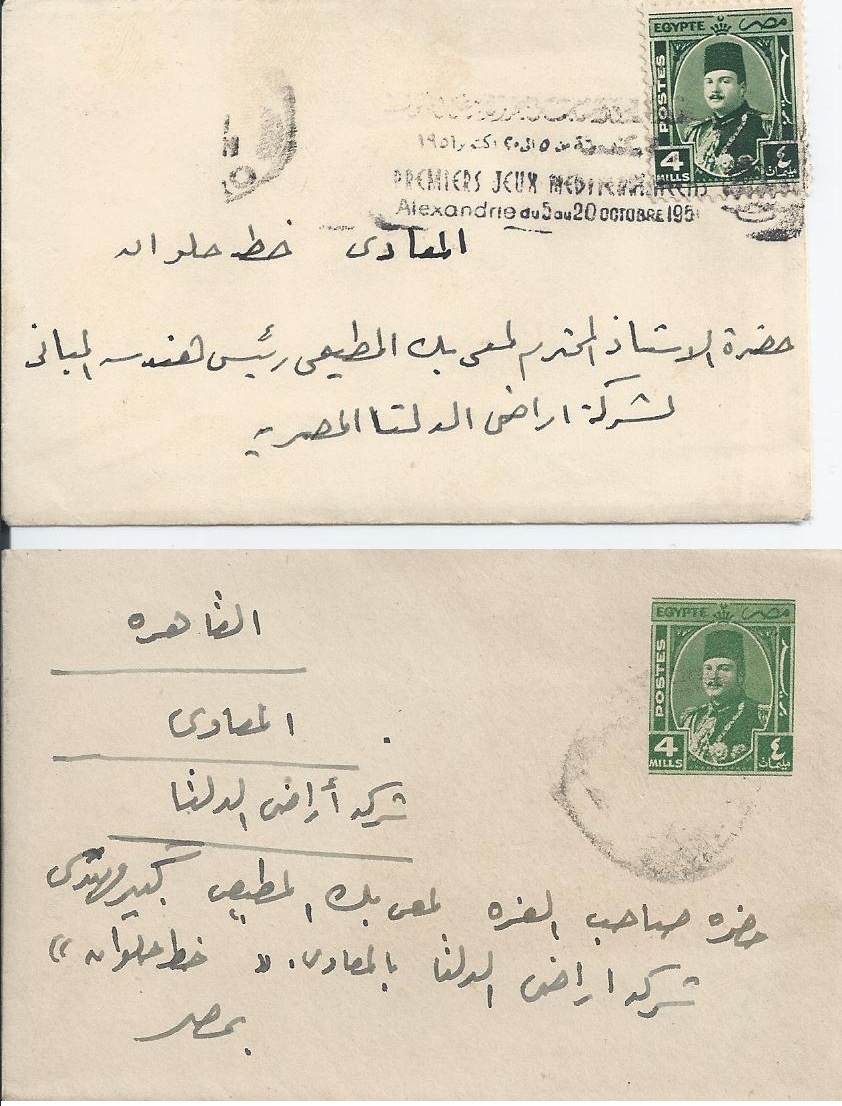 EGYPTE مصر
POSTES
4 MILLS ٤ مليمات
من ٥ الى ٢٠ اكتوبر ١٩٥١
PREMIERS JEUX MEDITERRANEENS
Alexandrie du 5 au 20 OCTOBRE 195
المعادى خط حلوان
حضرة الاستاذ المحترم لمعى بك المطيعى رئيس هندسة المبانى
لشركة اراضى الدلتا المصرية
EGYPTE مصر
POSTES
4 MILLS ٤ مليمات
القاهره
المعادى
شركة أراضى الدلتا
حضره صاحب العزه لمعى بك المطيعى كبير مهندسى
شركة اراضى الدلتا بالمعادى. « خط حلوان »
بمصر